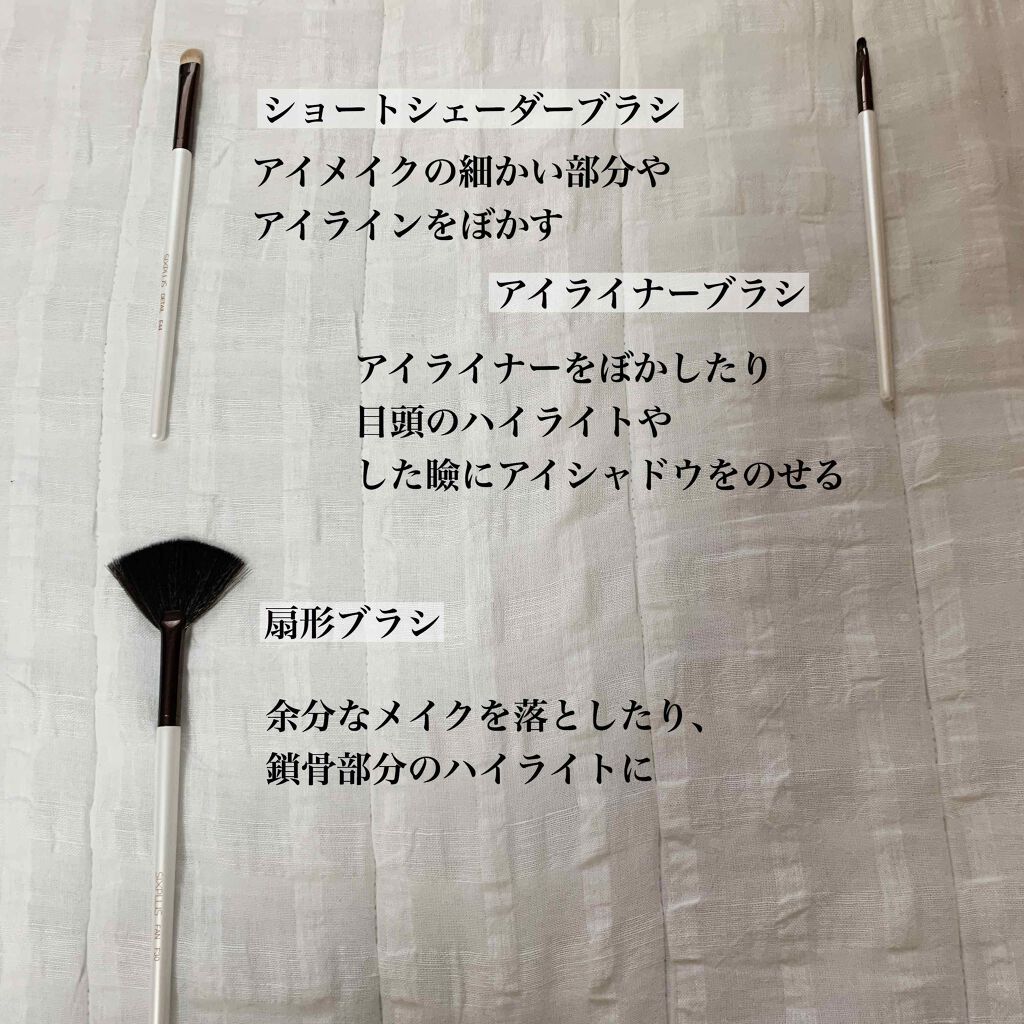 ショートシェーダーブラシ
アイメイクの細かい部分や
アイラインをぼかす
SIXPLUS DETAIL E44
アイライナーブラシ
アイライナーをぼかしたり
目頭のハイライトや
した瞼にアイシャドウをのせる
扇形ブラシ
余分なメイクを落としたり、
鎖骨部分のハイライトに
SIXPLUS FAN F30